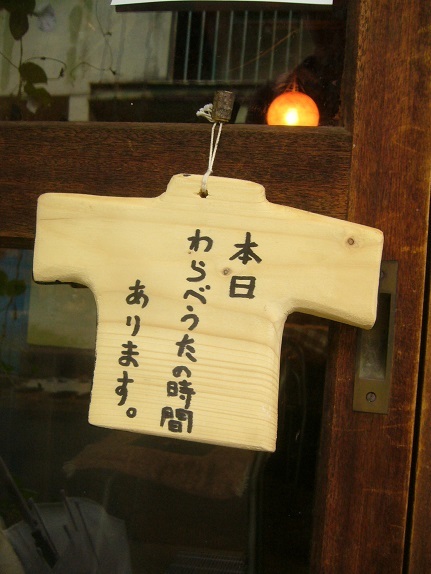 本日
わらべうたの時間
あります。